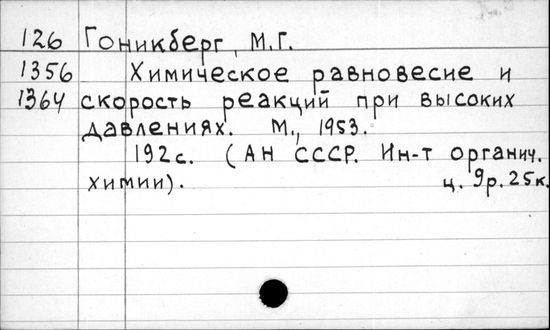 126 Гоникберг, М.Г.
1356 Химическое равновесие и
1364 скорость реакций при высоких
давлениях. М., 1953.
192с. (АН СССР. Ин-т органич.
химии). ц. 9р. 25к.